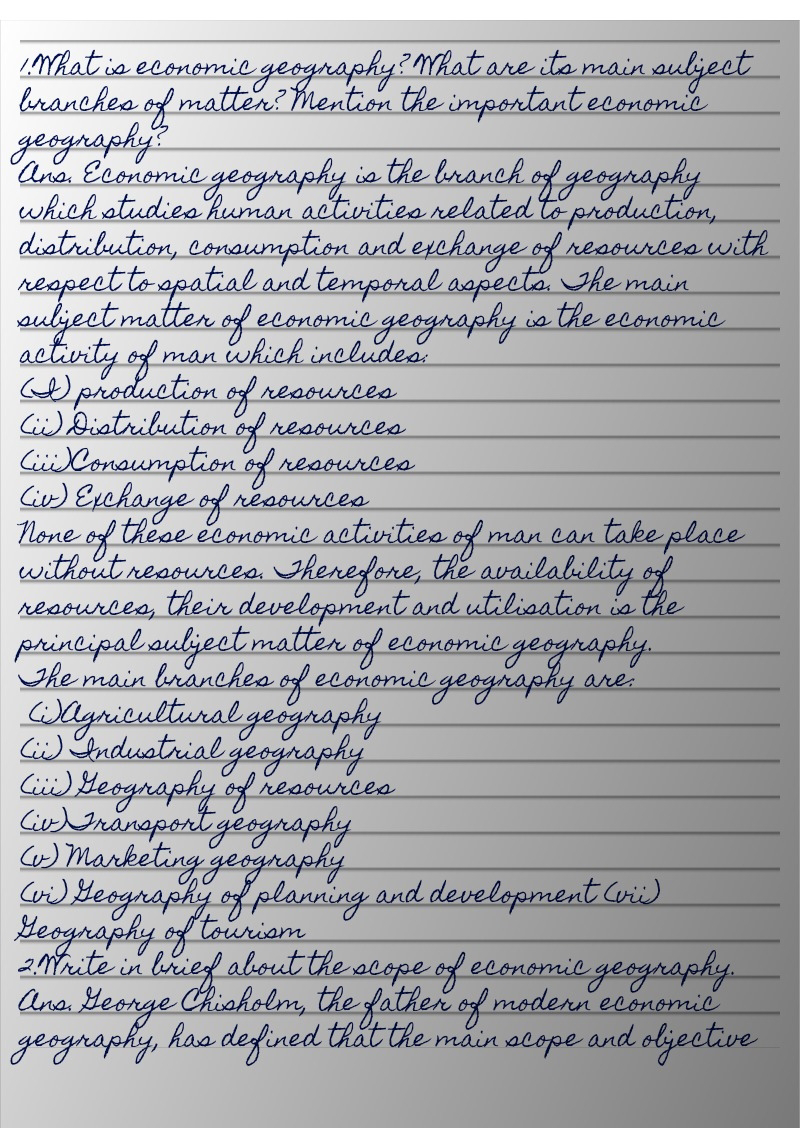 1.What is economic geography? What are its main subject
branches of matter? Mention the important economic
geography?
Ans. Economic geography is the branch of geography
which studies human activities related to production,
distribution, consumption and exchange of resources with
respect to spatial and temporal aspects. The main
subject matter of economic geography is the economic
activity of man which includes:
(I) production of resources
(ii) Distribution of resources
(iii)Consumption of resources
(iv) Exchange of resources
None of these economic activities of man can take place
without resources. Therefore, the availability of
resources, their development and utilisation is the
principal subject matter of economic geography.
The main branches of economic geography are:
(i)Agricultural geography
(ii) Industrial geography
(iii) Geography of resources
(iv)Transport geography
(v) Marketing geography
(vi) Geography of planning and development (vii)
Geography of tourism
2.Write in brief about the scope of economic geography.
Ans. George Chisholm, the father of modern economic
geography, has defined that the main scope and objective